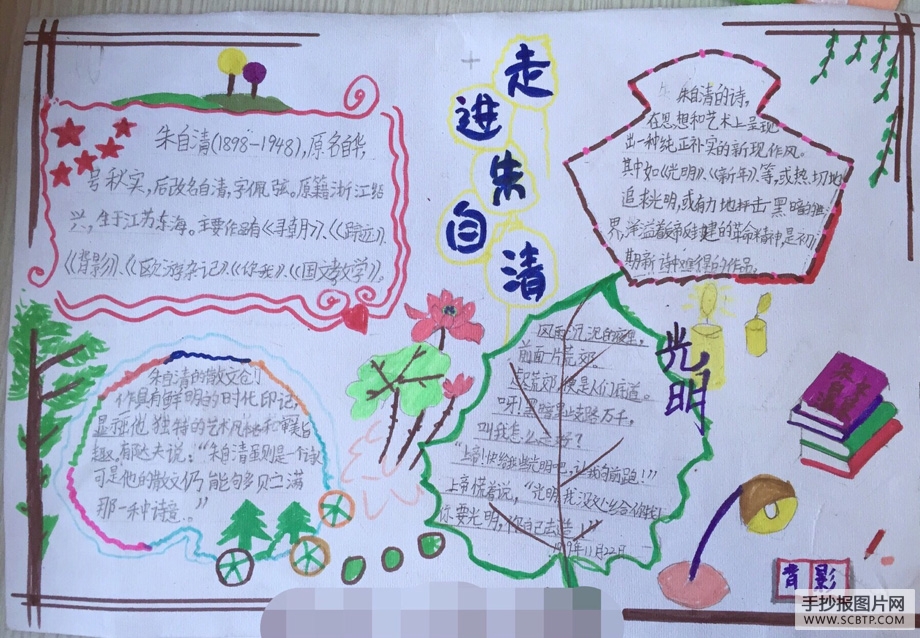 走进朱自清
朱自清(1898-1948),原名自华,
号秋实,后改名自清,字佩弦。原籍浙江绍
兴,生于江苏东海。主要作品有《寻月》、《踪迹》、
《背影》、《欧游杂记》、《你我》、《国文教学》。
朱自清的诗,
在思想和艺术上呈现
出一种纯正朴实的新现作风。
其中如《光明》、《新年》等,或热切地
追求光明,或有力地抨击黑暗的世
界,洋溢着反帝反封建的革命精神,是初
期新诗中难得的作品。
朱自清的散文创
作具有鲜明的时代印记,
显现他独特的艺术风格和审美旨
趣,郁达夫说:“朱自清虽则是一个诗
可是他的散文仍能够贮满
那一种诗意。”
光明
风雨沉沉的夜里,
前面一片荒郊。
走荒郊,便是人们底道。
呀!黑暗里歧路万千,
叫我怎么走好?
“上帝!快给我些光明吧,让我好前跑!”
上帝慌着说,“光明?我没处给你找!
你要光明,你自己去造!”
1919年11月22日
朱自清
背影
手抄报图片网
WWW.SCBTP.COM